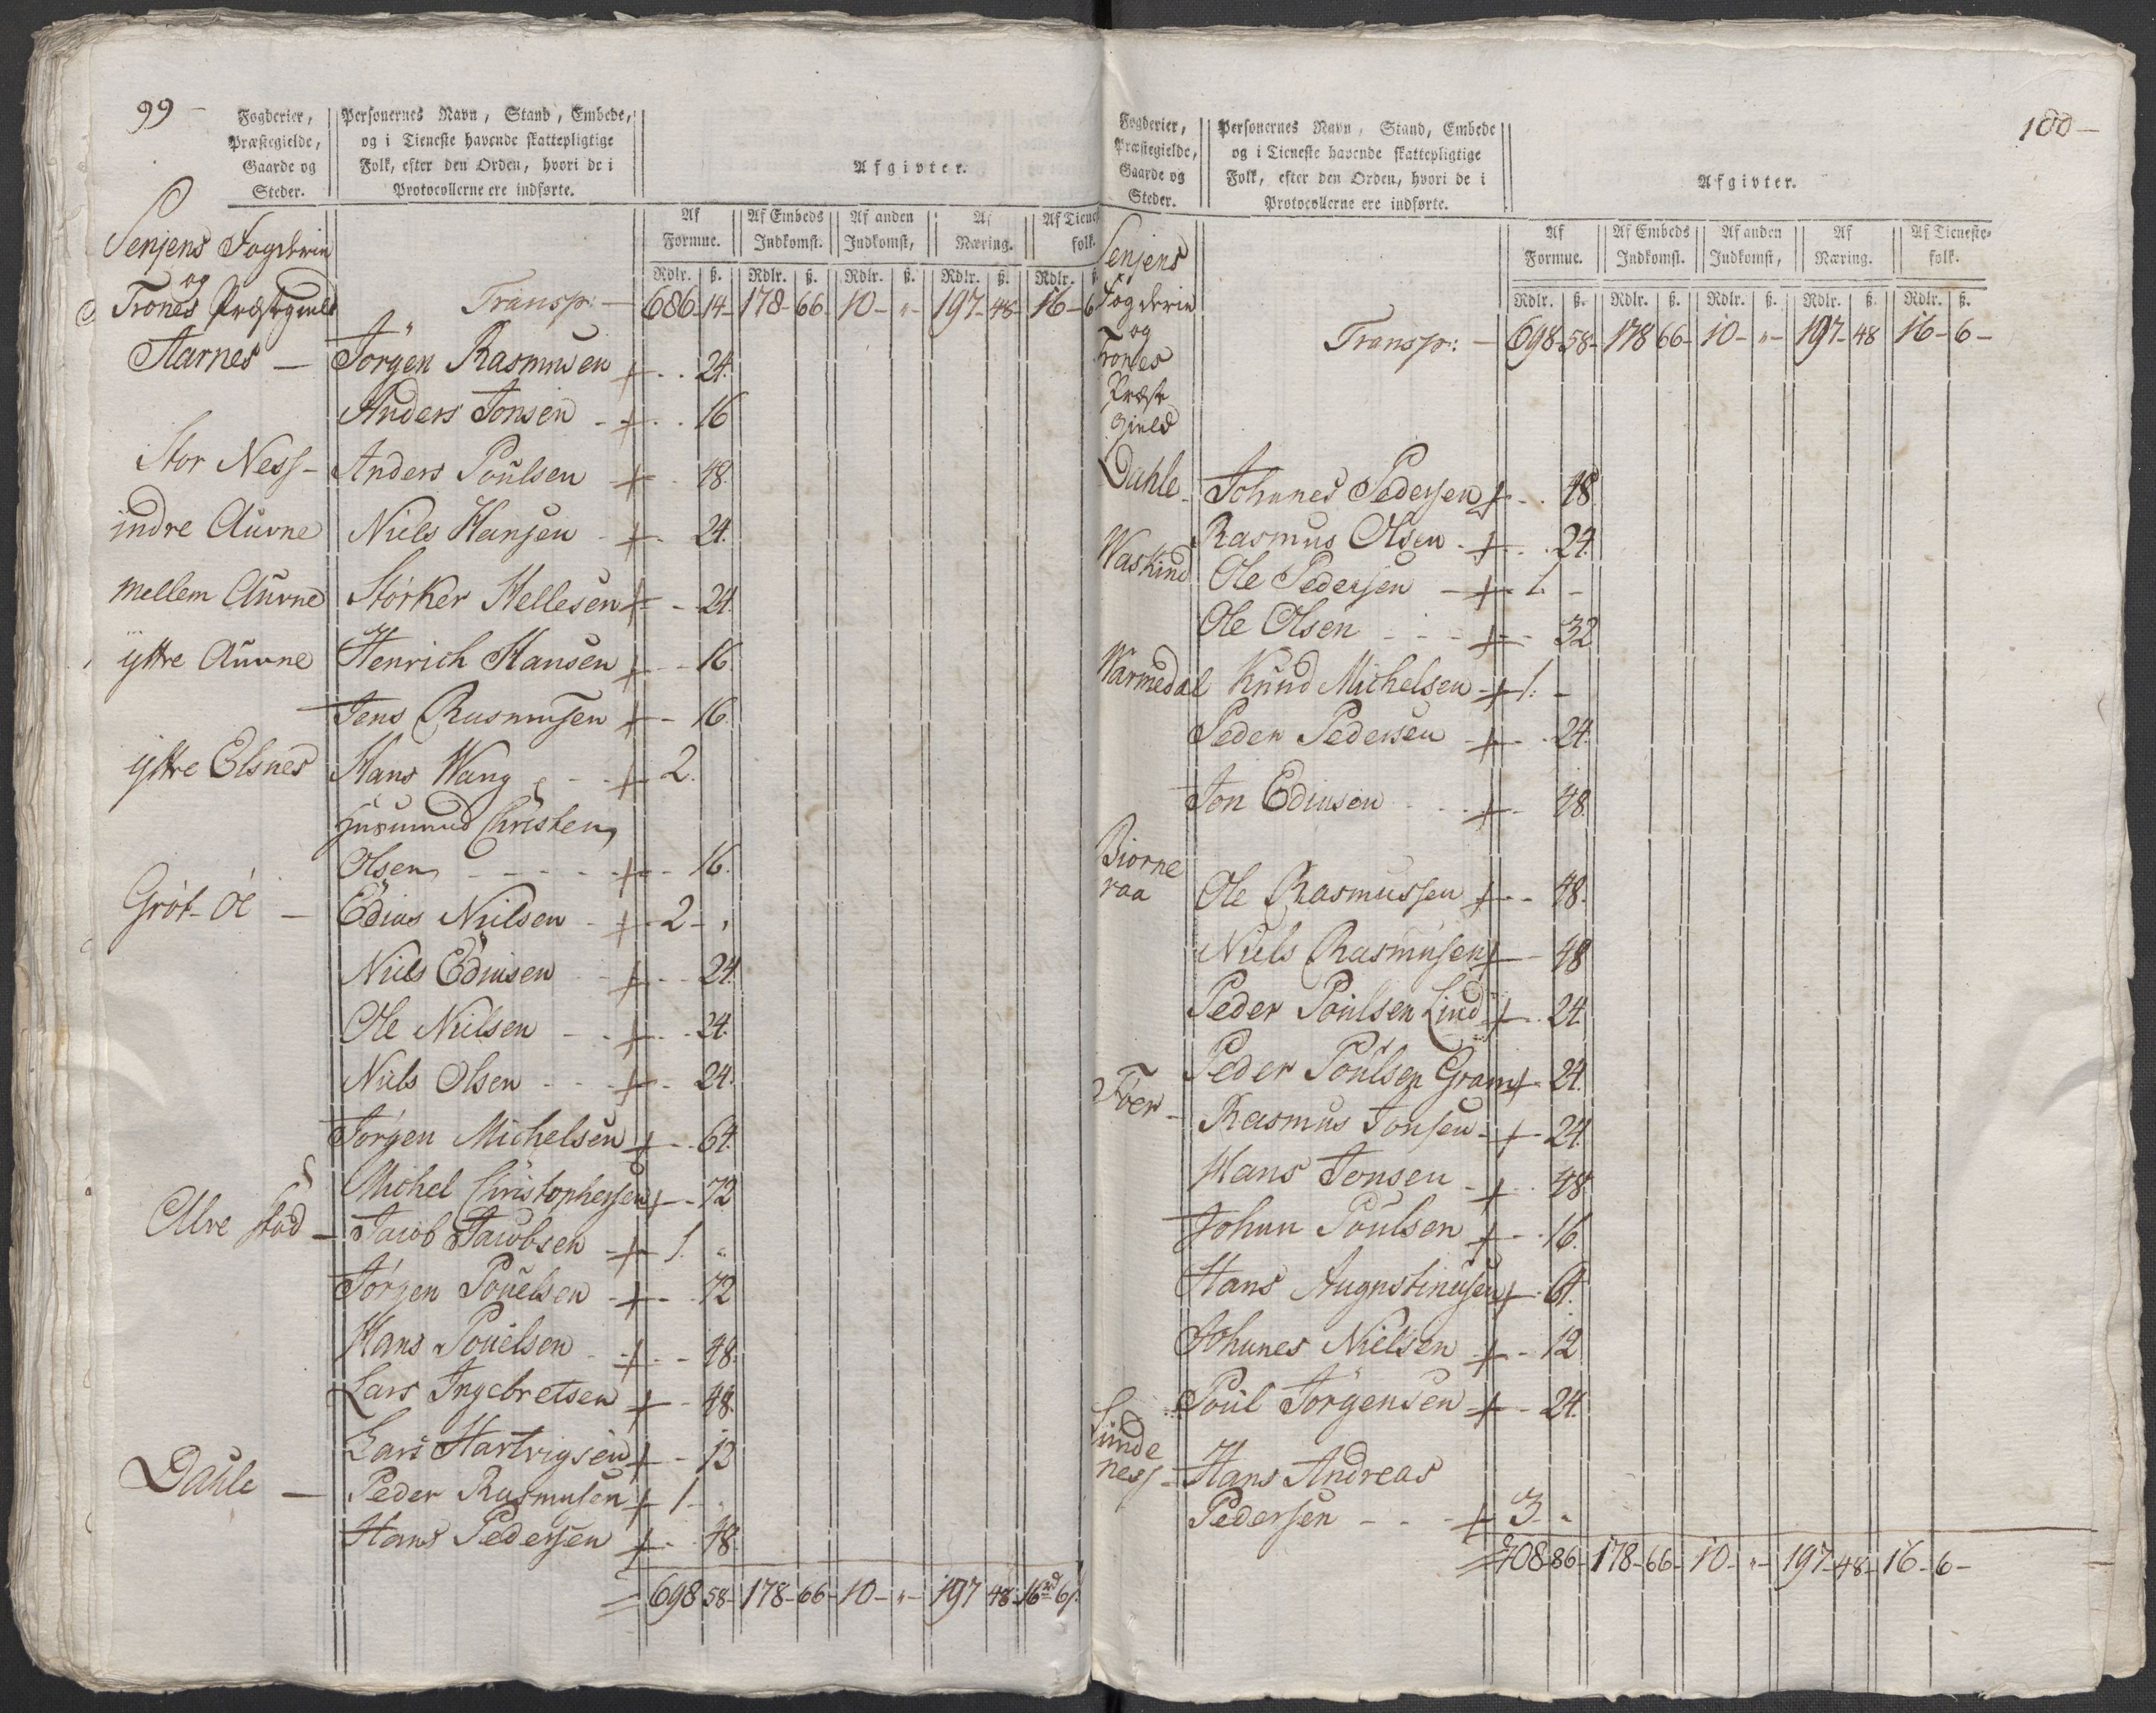 99 -
Fogderier,
Præstegielde,
Gaarde og
Steder.
Personernes Navn, Stand, Embede,
og i Tieneste havende skattepligtige
Folk, efter den Orden, hvori de i
Protocollerne ere indførte.
Afgivter.
Af Formue. Af Embeds Indkomst. Af anden Indkomst, Af Næring. Af Tienes folk.
Rdlr. ß. Rdlr. ß. Rdlr. ß. Rdlr. ß. Rdlr.
Senjens Fogderie
og
Trones Præstegield
Transp: - 686 - 14 - 178 - 66 - 10 - " - 197 - 48 - 16 - 6
Aarnes - Jørgen Rasmusen + 24.
Anders Jonsen + 16
Stor Ness - Anders Poulsen + 48.
indre Auvne Niels Hansen + 24.
mellem Auvne Størker Hellesen + 24.
yttre Auvne Henrich Hansen + 16
Jens Rasmusen + 16.
yttre Elsnes Hans Wang + 2.
huusmand Christen
Olsen + 16.
Grøt-øe - Edias Nielsen + 2 -
Niels Ediasen + 24.
Ole Nielsen + 24.
Niels Olsen + 24.
Jørgen Michelsen + 64.
Michel Christophersen + 72
Alvestad - Jacob Jacobsen + 1.
Jørgen Pouelsen + 72
Hans Pouelsen + 48.
Lars Ingebretsen + 48.
Lars Hartvigsen + 12
Dahle - Peder Rasmusen + 1 -
Hans Pedersen + 48.
= 698 58 - 178 - 66 - 10 - " - 197 48 - 16 rd 6 ß.
100 -
Fogderier,
Præstegielde,
Gaarde og
Steder.
Personernes Navn, Stand, Embede
og i Tieneste havende skattepligtige
Folk, efter den Orden, hvori de i
Protocollerne ere indførte.
Afgivter.
Af Formue. Af Embeds Indkomst. Af anden Indkomst, Af Næring. Af Tieneste- folk.
Rdlr. ß. Rdlr. ß. Rdlr. ß. Rdlr. ß. Rdlr. ß.
Senjens
Fogderie
og
Trones
Præste
gield
Transp: - 698 - 58 - 178 66 - 10 - " - 197 - 48 16 - 6 -
Dahle - Johanes Pedersen + 48.
Rasmus Olsen + 24.
Waskind Ole Pedersen + 1. -
Ole Olsen + 32
Warmedal Knud Michelsen + 1. -
Peder Pedersen + 24.
Jon Ediasen + 48.
Biorne
raa Ole Rasmussen + 48.
Niels Rasmusen + 48
Peder Poulsen Lind + 24.
Peder Poulsen Gram + 24.
Rasmus Jonsen + 24.
Hans Jonsen + 48
Johan Poulsen + 16.
Hans Augustinusen + 64.
Johanes Nielsen + 12
Poul Jørgensen + 24.
Lunde
ness - Hans Andreas
Pedersen + 3 -
= 708 86 - 178 - 66 - 10 - " - 197 - 48 - 16 - 6 -